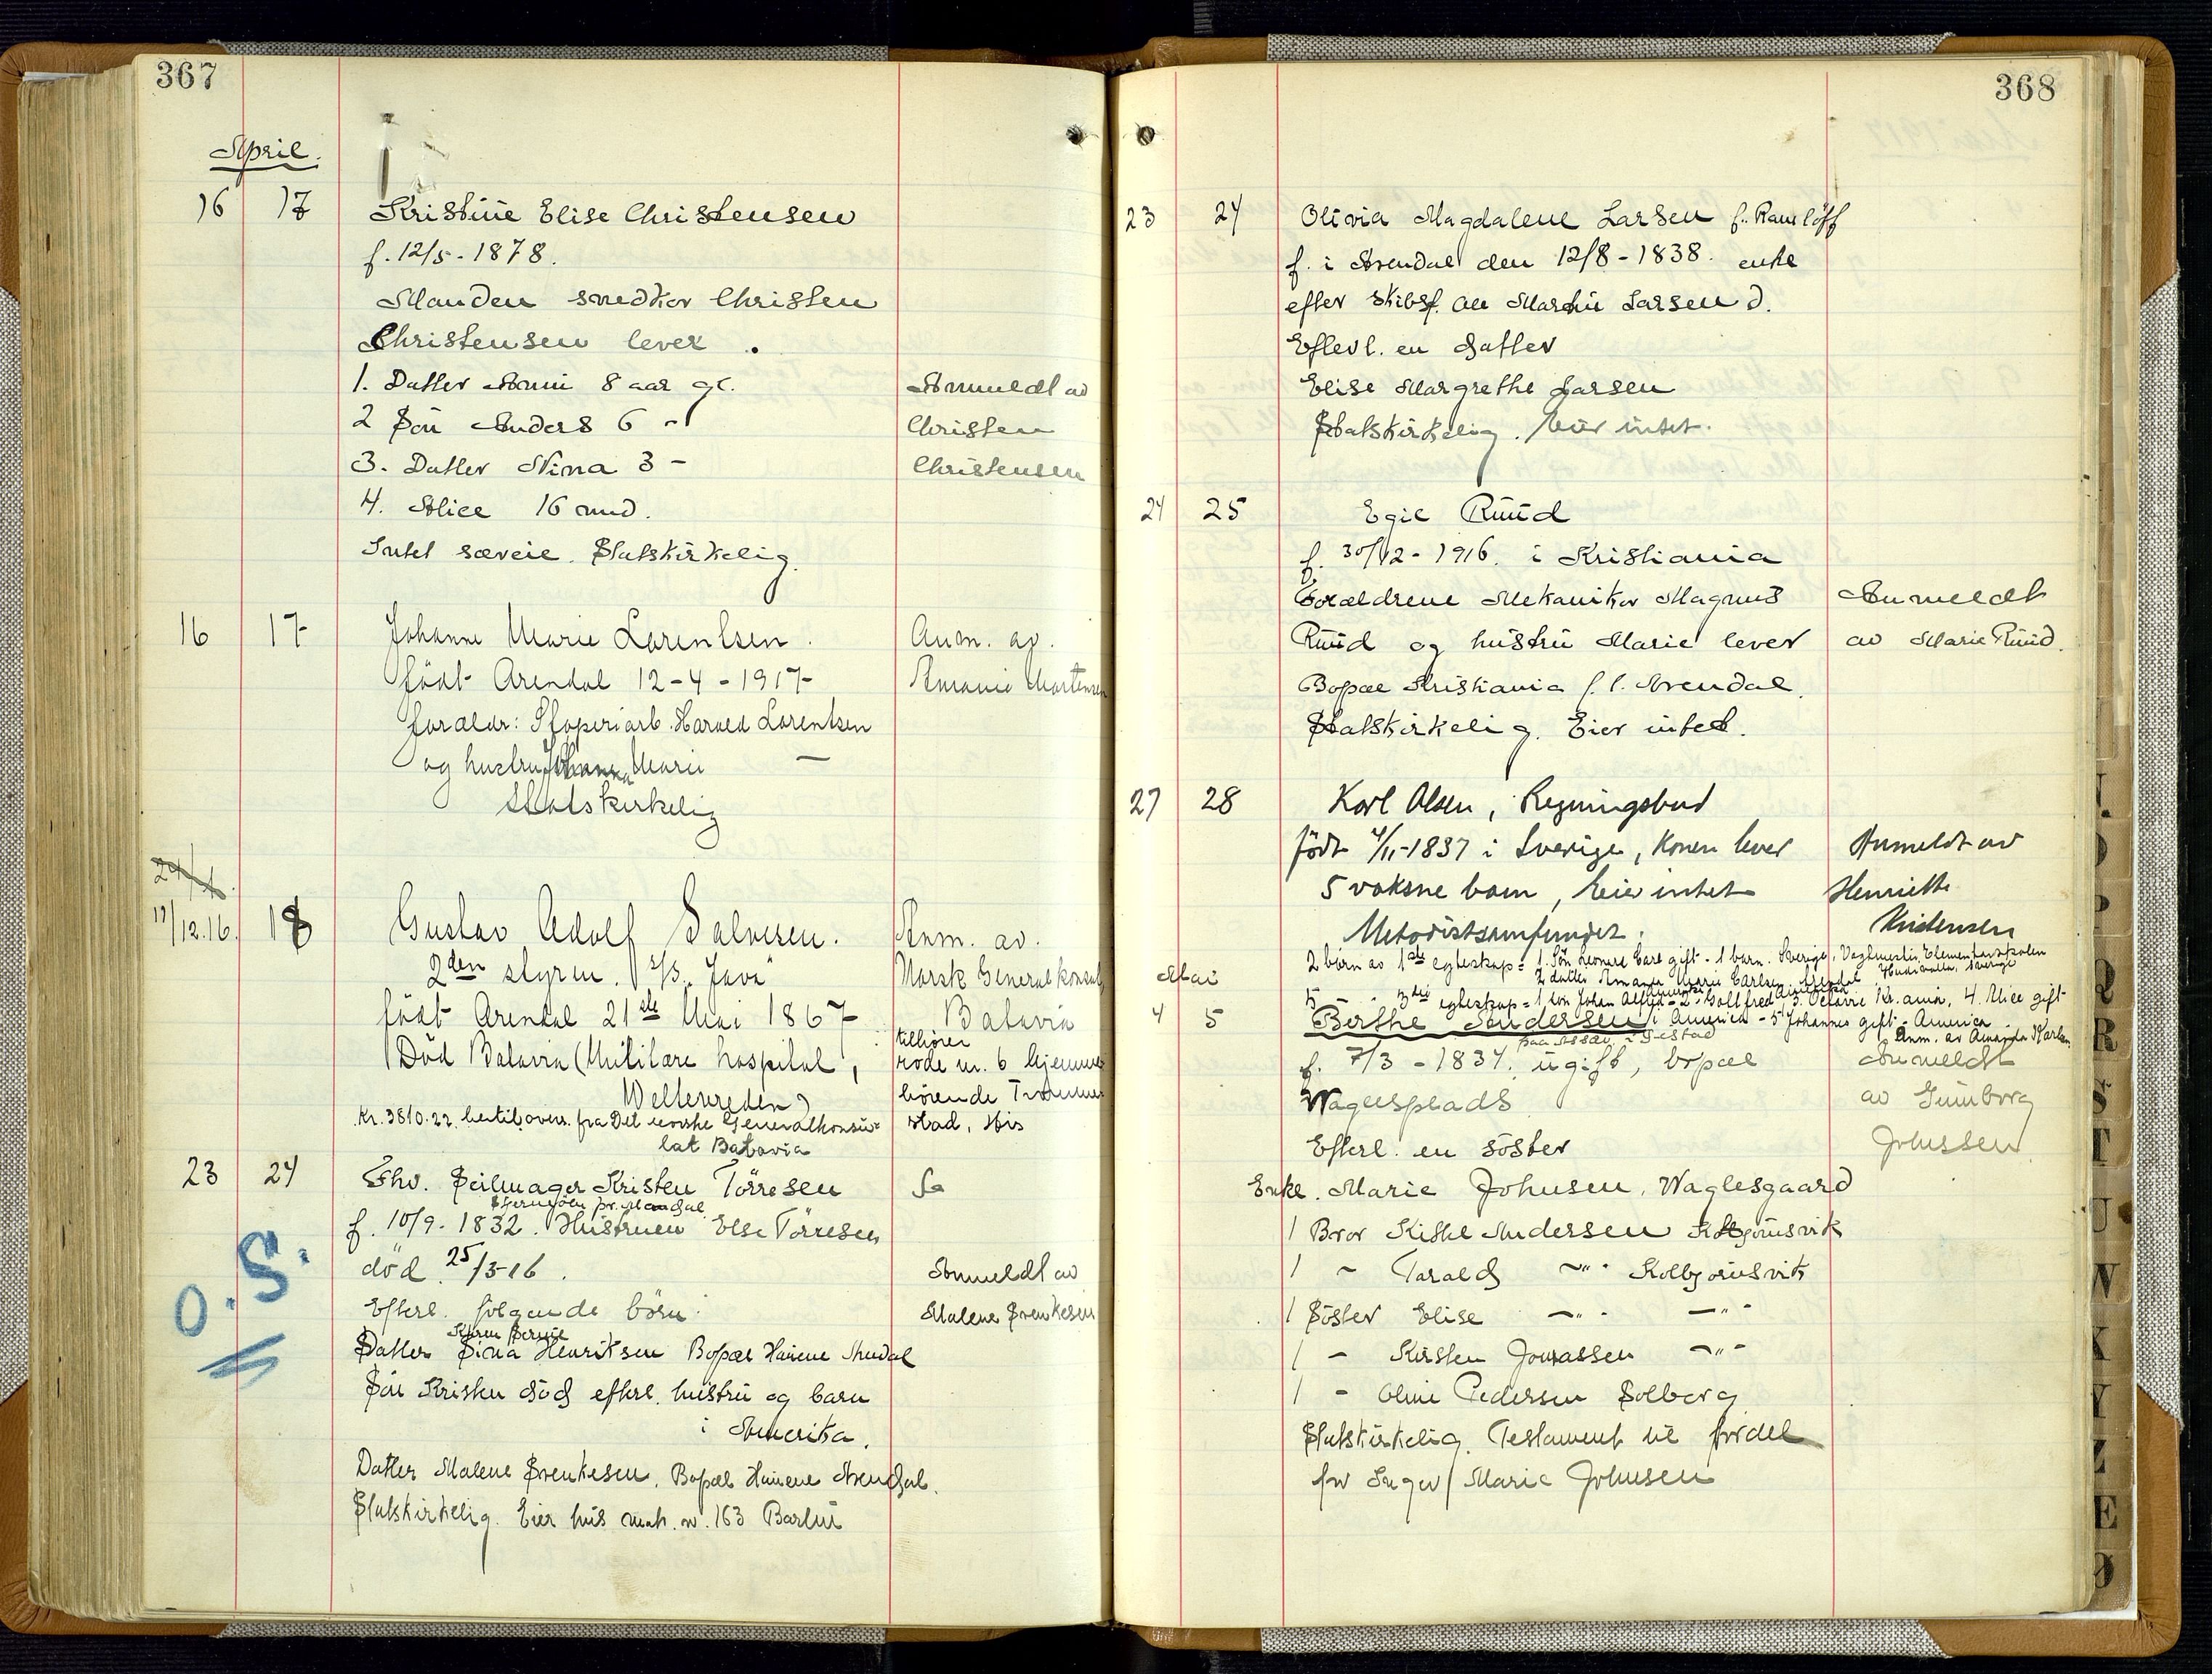 367
April.
16 17 Kristine Elise Christensen
f. 12/5-1878.
Manden snedker Christen
Christensen lever.
1. Datter Anni 8 aar gl. Anmeldt av
2 Søn Anders 6 -"- Christen
3. Datter Nina 3 - Christensen
4. Alice 16 mnd.
Intet særeie. Statskirkelig.
16 17 Johanne Marie Lorentsen. Anm. av.
født Arendal 12-4-1917 Amanie Mortensen
foraldr: Støperiarb. Harald Lorentsen
og hustru Johanna Marie —
Statskirkelig
24/4.
19/12.16. 18 Gustav Adolf Salvesen. Anm. av.
2den styrm. S/S. Java Norsk Generalkonsul
født Arendal 21de Mai 1867 Batavia
Død Batavia (Militære hospital, tilhører rode nr. 6 hjemme-
Weltevreden) hørende Tromøe-
Kr. 3810.22 hertil overs. fra Det norske Generalkonsu= stad, His
lat Batavia
23 24 Fhv. Seilmager Kristen Tørresen Ja
Stjernøen pr. Mandal
f. 10/9-1832. Hustruen Else Tørresen
død 25/3-16. Anmeldt av
Efterl. følgende børn: Malene Svenkesen
O.S.
Karen Serine
Datter Sina Henriksen Bopæl Hanene Arendal
Søn Kristen død efterl. hustru og barn
i Amerika.
Datter Malene Svenkesen. Bopæl Hanene Arendal.
Statskirkelig. Eier hus matr. nr. 163 Barbu
368
23 24 Olivia Magdalene Larsen f. Ramløff
f. i Arendal den 12/8-1838. enke
efter skibsf. Martin Larsen d.
Efterl. en datter
Elise Margrethe Larsen
Statskirkelig. Eier intet.
24 25 Egil Ruud
f. 30/12-1916. i Kristiania
Forældrene Mekaniker Magnus Anmeldt
Ruud og hustru Marie lever av Marie Ruud.
Bopæl Kristiania f. t. Arendal.
Statskirkelig. Eier intet.
27 28 Karl Olsen, Regningsbud
født 4/11-1837 i Sverige, Konen lever Anmeldt av
5 voksne barn, Eier intet Henriette
Metodistsamfundet. Knudensen
2 børn av 1ste egteskap = 1. Søn Leonard Carl gift - 1 barn. Sverige, Elementarskolen
2 datter Amanda Marie Carlsen Arendal Hudiksvall, Sverige
5 - - 3die egteskap = 1 søn Johan Alfred - 2. Gottfred Amerika 3. Kr.ania, 4. Alice gift
i America - 5 Johannes gift - America
Anm. av Amanda Karlsen
Mai
4 5 Berthe Andersen
f. 7/3-1834. ugift, bopæl Anmeldt
Waglesplads av Gunborg
Efterl. en søster Johnssen
Enke. Marie Johnsen, Waglesgaard
1 Bror Kittel Andersen Kolbjørnsvik
1 - Tarald -"- Kolbjørnsvik
1 Søster Elise -"- -"-
1 - Kirsten Jonassen -"-
1 - Oline Pedersen Solberg
Statskirkelig. Testament til fordel
for Inger Marie Johnsen